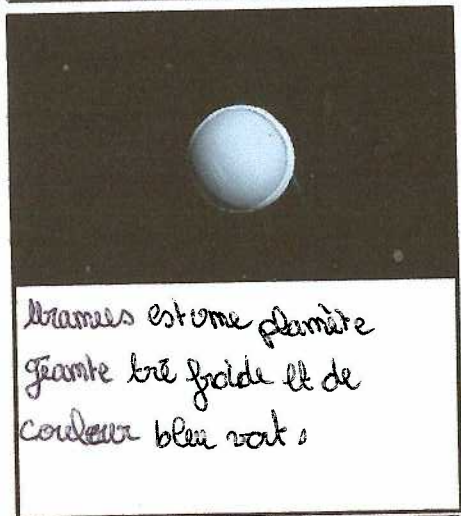 Uranus est une planète
géante tré froide et de
couleur bleu vert.